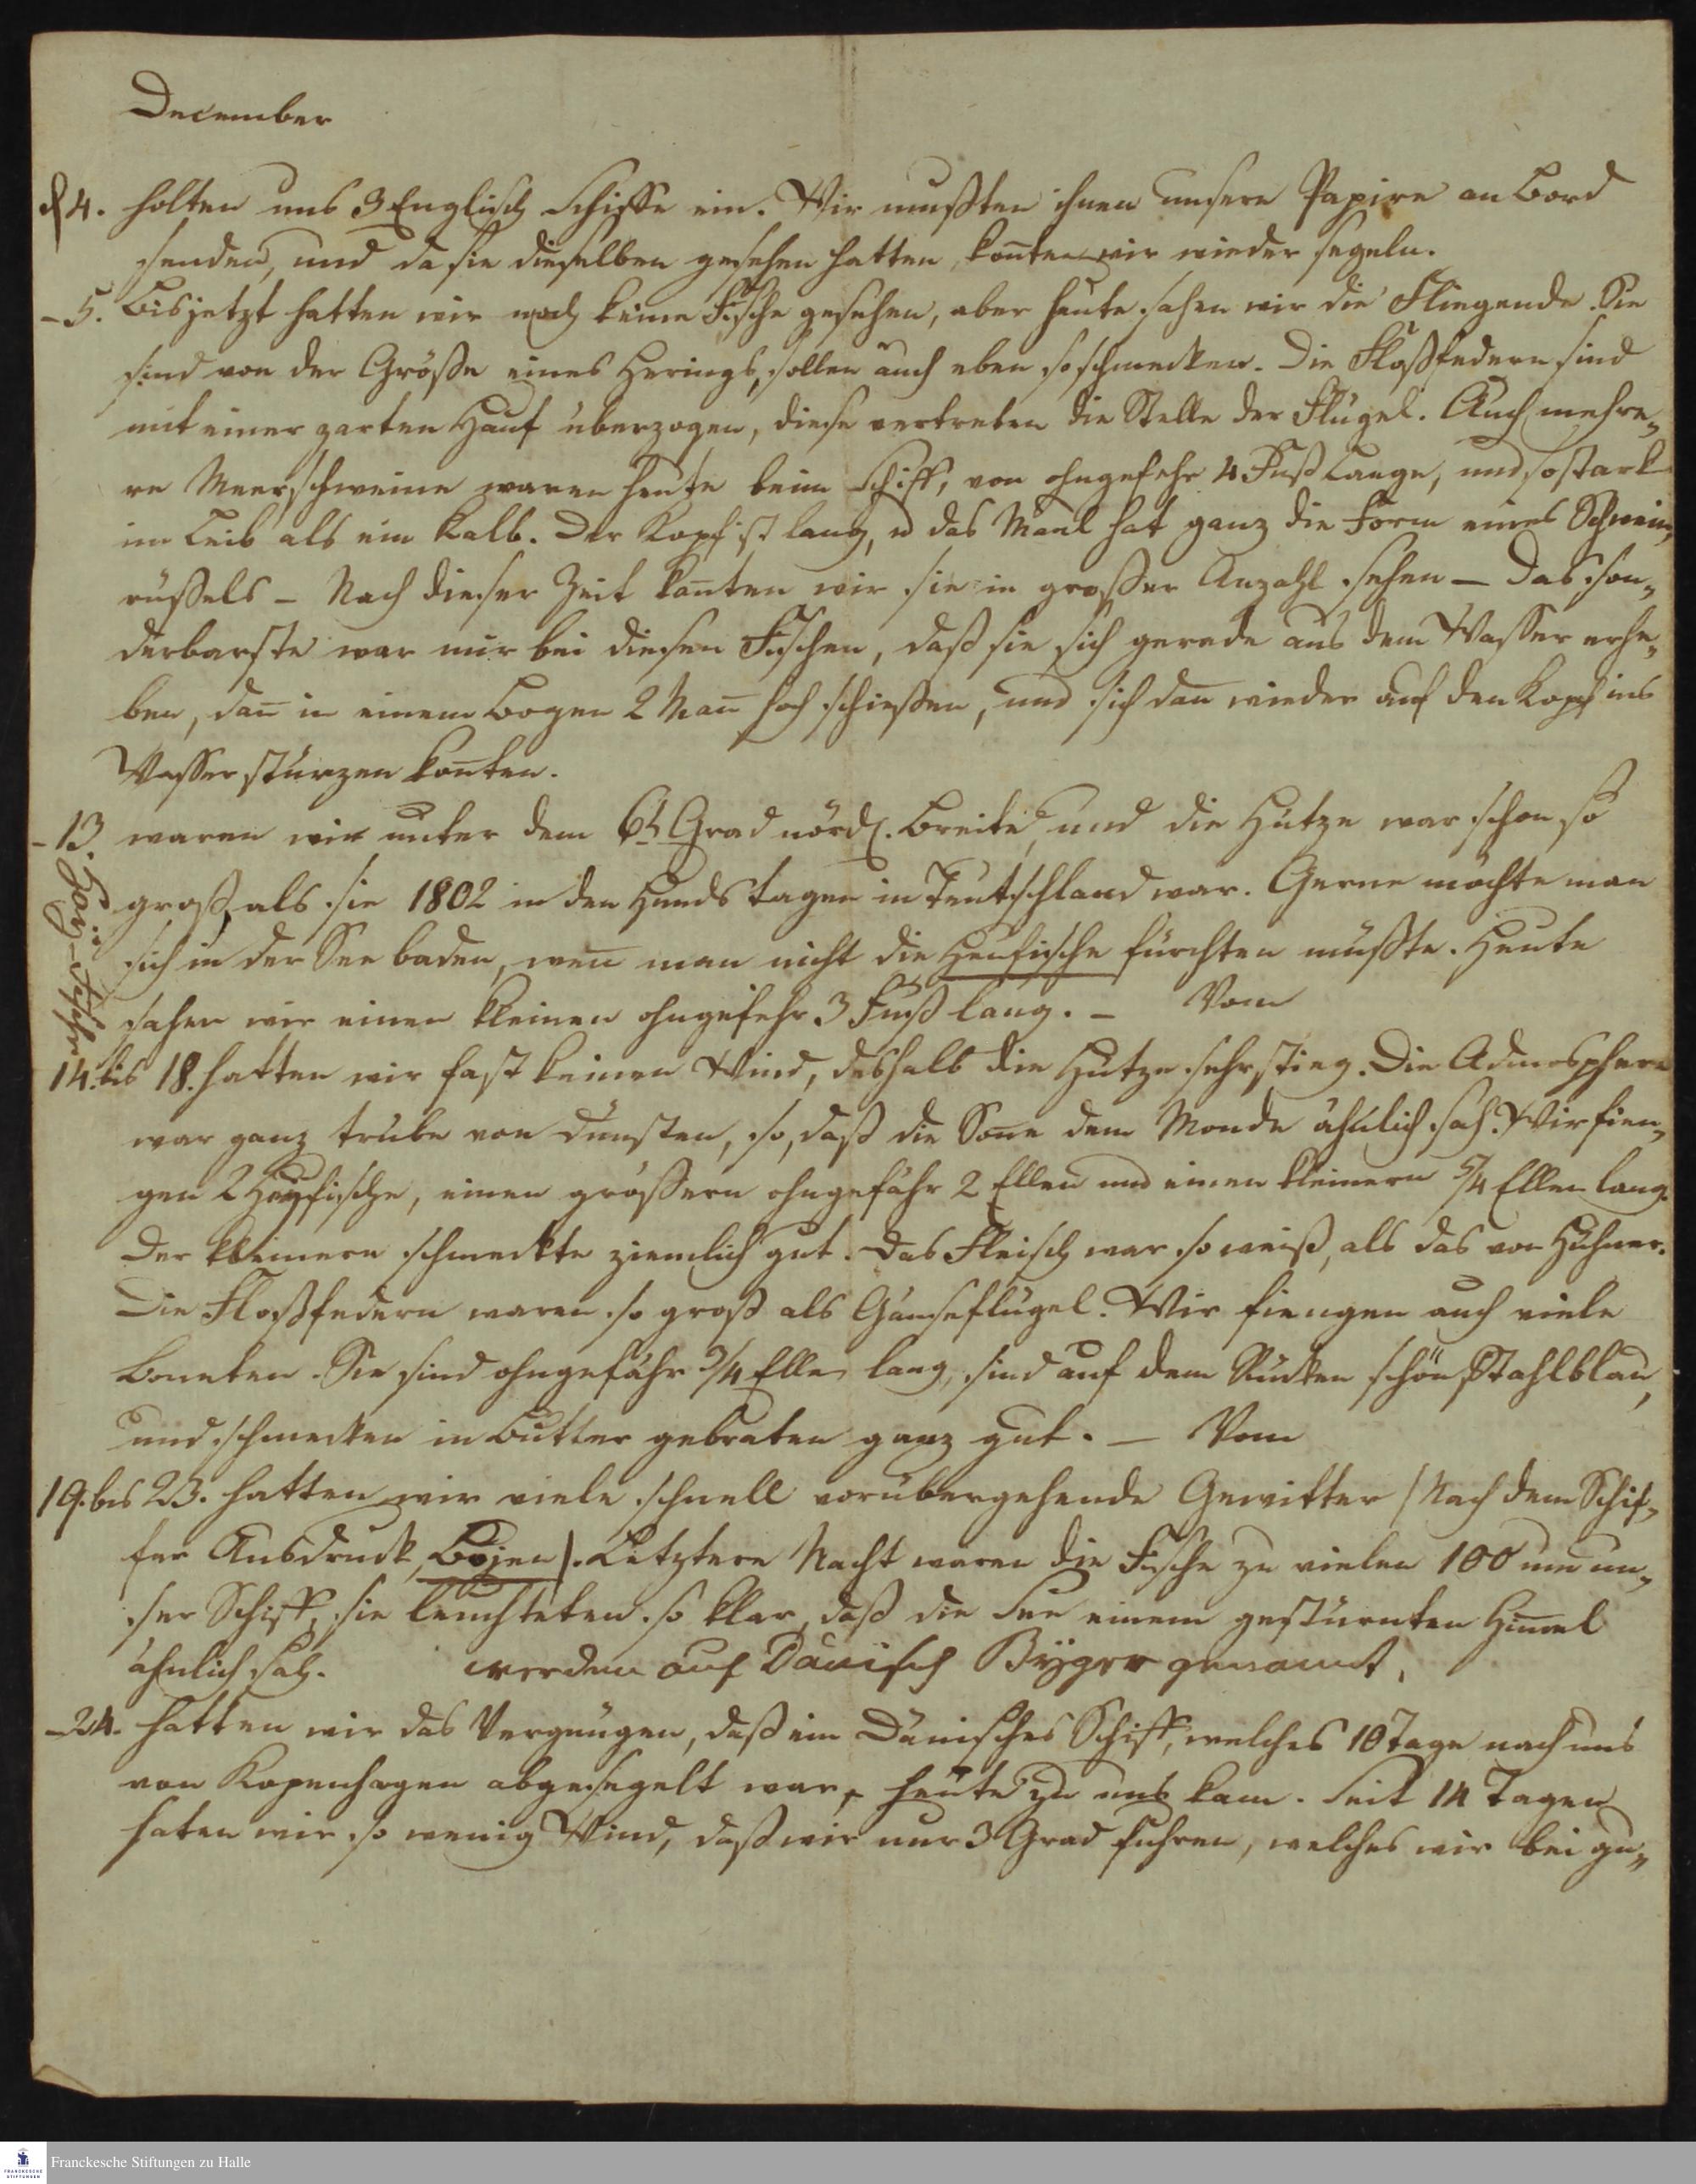 December
d 4. holten uns 3 Englisch Schiffe ein. Wir mußten ihnen unsere Papire an Bord
senden, und da sie dieselben gesehen hatten, kon̄ten wir wieder segeln.
– 5. Bisjetzt hatten wir noch keine Fische gesehen, aber heute sahen wir die Fliegende. Sie
sind von der Größe eines Herings, sollen auch eben so schmecken. Die Floßfedern sind
mit einer zarten Hauf überzogen, diese vertreten die Stelle der Flügel. Auch mehre„
re Meerschweine waren heute beim Schiff, von ohngefehr 4 Fuß Lange, und so stark
im Leib als ein Kalb. Der Kopf ist lang, u das Maul hat ganz die Form eines Schwein„
rüßels – Nach dieser Zeit kon̄ten wir sie in großer Anzahl sehen – Das son„
derbarste war mir bei diesen Fischen, daß sie sich gerade aus dem Waßer erhe„
ben, dan̄ in einem Bogen 2 Man̄ hoch schießen, und sich dan̄ wieder auf den Kopf ins
Waßer stürzen kon̄ten.
– 13. waren wir unter dem 6t Grad nördl. Breite, und die Hutze war schon so
groß, als sie 1802 in den Hundstagen in Teutschland war. Gerne möchte man
sich in der See baden, wen̄ man nicht die Heufische fürchten müßte. Heute
sahen wir einen kleinen ohngefehr 3 Fuß lang. – Vom
14. bis 18. hatten wir fast keinen Wind, deshalb die Hutze sehr stieg. Die Admosphere
war ganz trübe von Dünsten, so, daß die Son̄e dem Monde ähnlich sah. Wir fien„
gen 2 Hayfische, einen größern ohngefähr 2 Ellen und einen kleinern 5/4 Ellen lang.
Der kleinere schmeckte ziemlich gut. Das Fleisch war so weiß, als das von Hühner.
Die Floßfedern waren so groß als Gänseflügel. Wir fiengen auch viele
Boneten. Sie sind ohngefähr 3/4 Ellen lang, sind auf dem Rücken schön Stahlblau,
und schmecken in Butter gebraten ganz gut. – Vom
19. bis 23. hatten wir viele schnell vorübergehende Gewitter (Nach dem Schif„
fer Ausdruck, Bojen). Letztere Nacht waren die Fische zu vielen 100 um un„
ser Schiff, sie leuchteten so klar, daß die See einem gestürnten Him̄el
ähnlich sah. werden auf Dänisch Byger genannt.
– 24. hatten wir das Vergnügen, daß ein Dänisches Schiff, welches 10 Tage nach uns
von Kopenhagen abgesegelt war, heute zu uns kam. Seit 14 Tagen
haten wir so wenig Wind, daß wir nur 3 Grad fuhren, welches wir bei gu„
Franckesche Stiftungen zu Halle
FRANCKESCHE STIFTUNGEN